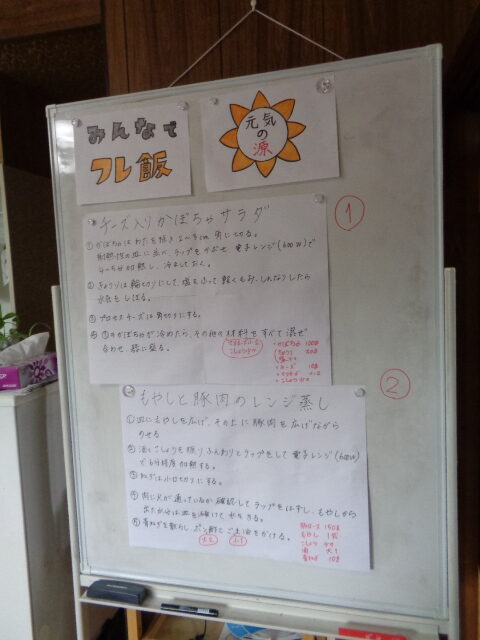 みんなで
フレ飯
元気
の
源
①
チーズ入りかぼちゃサラダ
①かぼちゃはわたを除き2〜3cm角に切る。
耐熱性の皿に並べ、ラップをかぶせ 電子レンジ(600W)で
4〜5分加熱し、冷ましておく。
②きゅうりは輪切りにして、塩をふって軽くもみ、しんなりしたら
水気をしぼる。
③プロセスチーズは角切りにする。
④①のかぼちゃが冷めたら、その他の材料をすべて混ぜ
合わせ、器に盛る。
こしょう少々
・かぼちゃ 100g
きゅうり
チーズ
・こしょう 少々
②
もやしと豚肉のレンジ蒸し
①皿にもやしを広げ、その上に豚肉を広げながら
のせる
②酒とこしょうを振り ふんわりとラップをして電子レンジ(600W)
で6分程度加熱する。
③ねぎは小口切りにする。
④肉に火が通っているか確認してラップをはずし、もやしから
出た水分は皿を傾けて水をきる。
⑤青ねぎを散らし ポン酢とごま油をかける。
豚ロース 150g
もやし 1袋
こしょう 少々
酒 大1
青ねぎ 10g